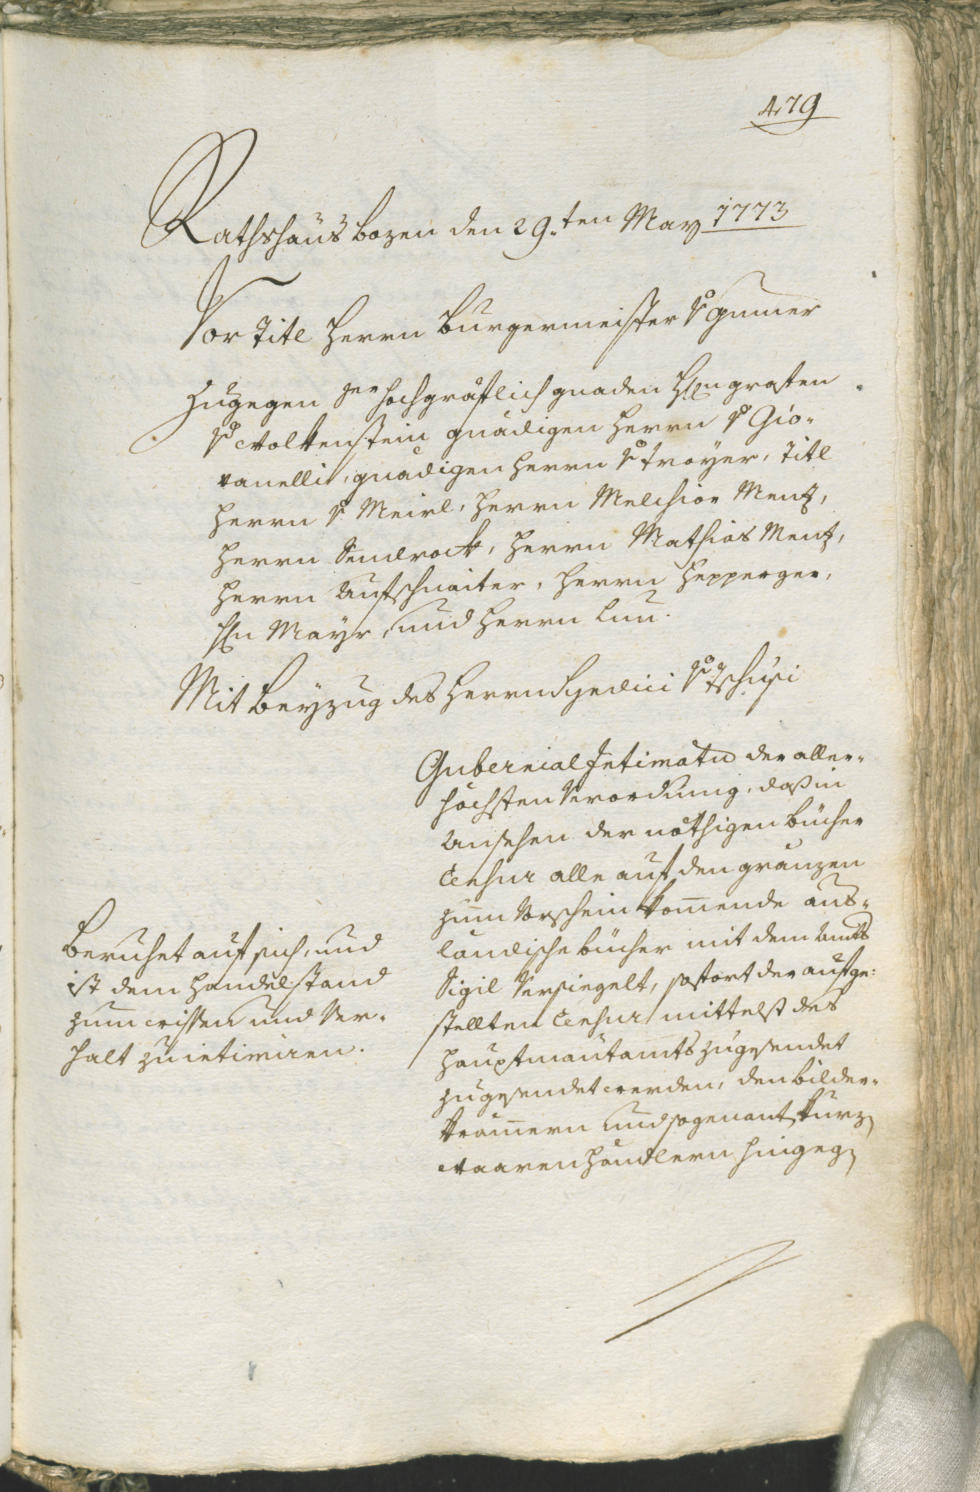 479
Rathshaus Bozen den 29.ten May 1773
Vor Titl Herrn Burgermeister v Gumer
Zugegen Sr hochgräflich gnaden Hhn grafen
v Wolkenstein gnädigen Herrn v Gio-
vanelli, gnädigen Herrn v Troyer, Titl
Herrn v Meirl, Herrn Melchior Menz,
Herrn Sendrock, Herrn Mathias Menz,
Herrn Aufschnaiter, Herrn Hepperger,
Hn Mayr, und Herrn Lun.
Mit Beyzug des Herrn Syndici v Tschusi
Gubernial Intimatum der aller-
höchsten Verordnung, daß in
Ansehen der nöthigen bücher
Censur alle auf den gränzen
zum Vorschein kommende aus-
ländische bücher mit dem Amts
Sigil Versiegelt, sofort der aufge-
stellten Censur mittelst des
Hauptmautamts zugesendet
zugesendet werden, den bilder-
krämern und sogenant kurz
waaren händlern hingeg
Beruhet auf sich, und
ist dem Handelstand
zum wissen und Ver-
halt zu intimiren.